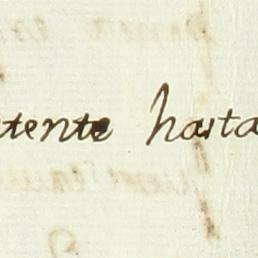 tente harta